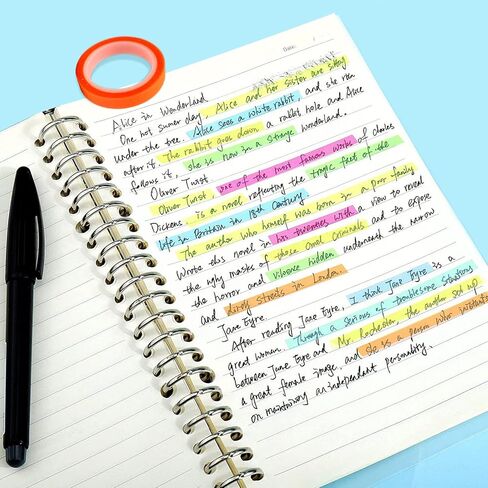 Date: /
Alice in Wonderland
One hot summer day, Alice and her sister are sitting
under the tree. Alice sees a white rabbit, and she ran
after it. The rabbit goes down a rabbit hole and Alice
follows it, she is now in a strange wonderland.
Oliver Twist
Oliver Twist, one of the most famous works of Charles
Dickens, is a novel reflecting the tragic fact of the
life in Britain in 18th century.
The author who himself was born in a poor family
Wrote this novel in his twenties with a view to reveal
the ugly masks of those cruel criminals and to expose
the horror and violence hidden underneath the narrow
and dirty streets in London.
Jane Eyre.
After reading Jane Eyre, I think Jane Eyre is a
great women. Through a serious of troublesome situations
between Jane Eyre and Mr. Rochester, the author set up
a great female image, and she is a person who insists
on maintaining an independent personality.